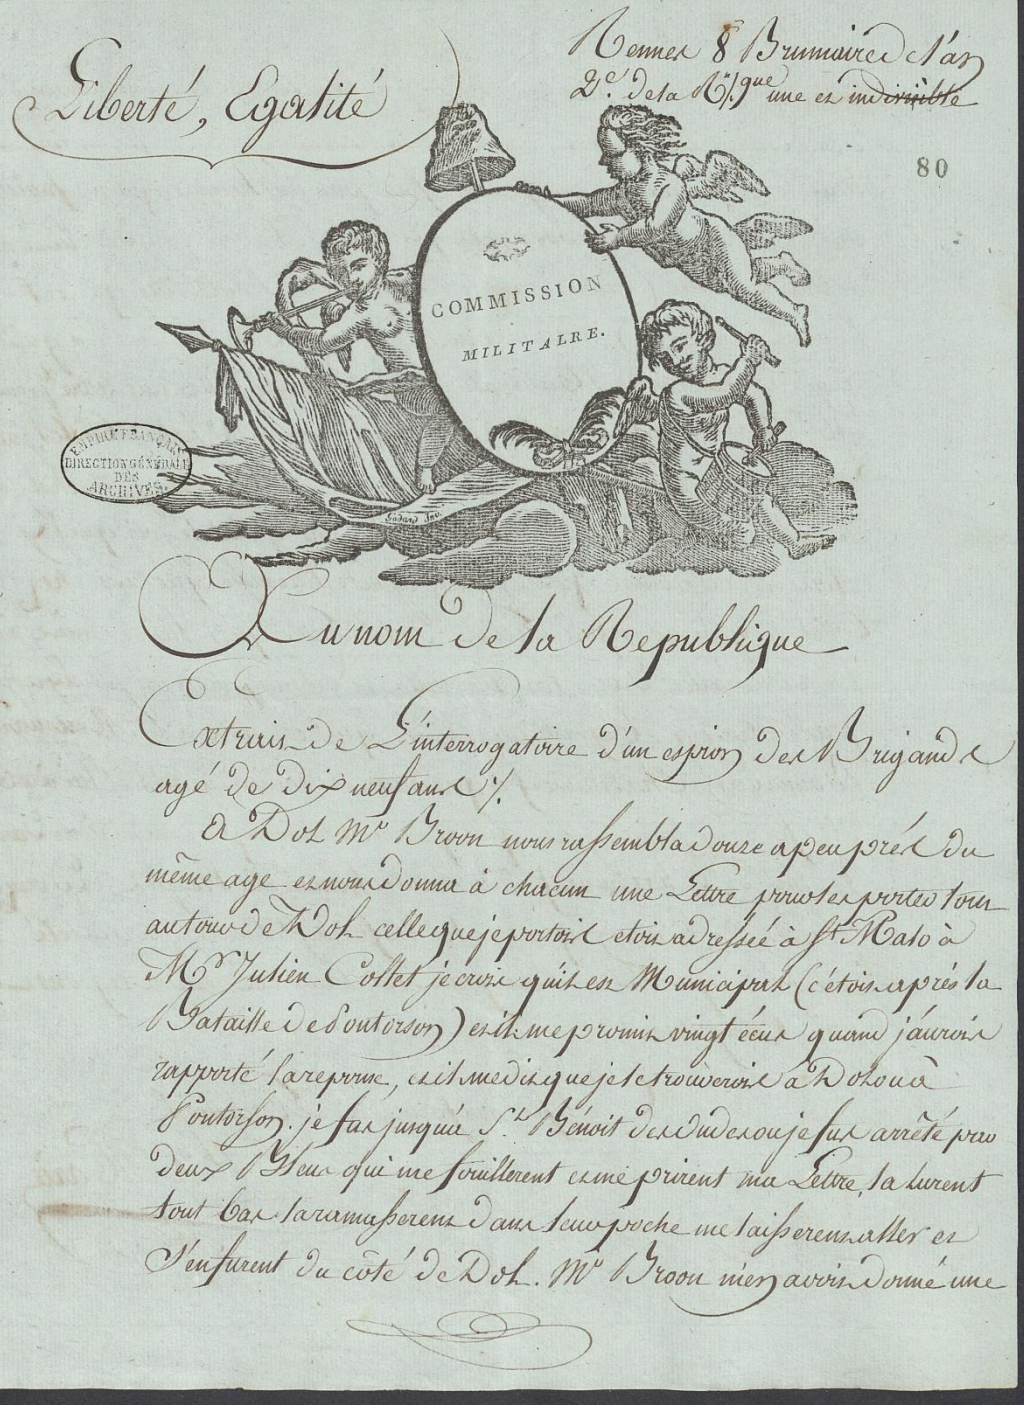 Liberté, Egalité
Rennes 8 Brumaire de l'an
2e. de la Rp.que une et indivisible
80
COMMISSION
MILITAIRE.
EMPIRE FRANÇAIS
DIRECTION GÉNÉRALE
DES
ARCHIVES
Godard Inv.
Au nom de la Republique
Extrait de L'interrogatoire d'un espion des Brigands
agé de dix neuf ans %.
A Dol Mr Broon nous rassembla douze apeuprés du
même age et nous donna à chacun une Lettre pour les porter tout
autour de Dol celle que je portois etoit adressée à St. Malo à
Mr Julien Coltet je crois qu'il est Municipal (c'étoit aprés la
Bataille de Pontorson) et il me promit vingt écus quand j'aurois
rapporté la reponse, et il me dit que je le trouverois à Dol ou à
Pontorson. je fus jusqu'a St. Bénoit des ondes ou je fus arrêté par
deux Bleus qui me fouillerent et me prirent ma Lettre, la lurent
tout bas la ramasserent dans leur poche me laisserent aller et
s'enfurent du côté de Dol. Mr Broon m'en avoit donné une